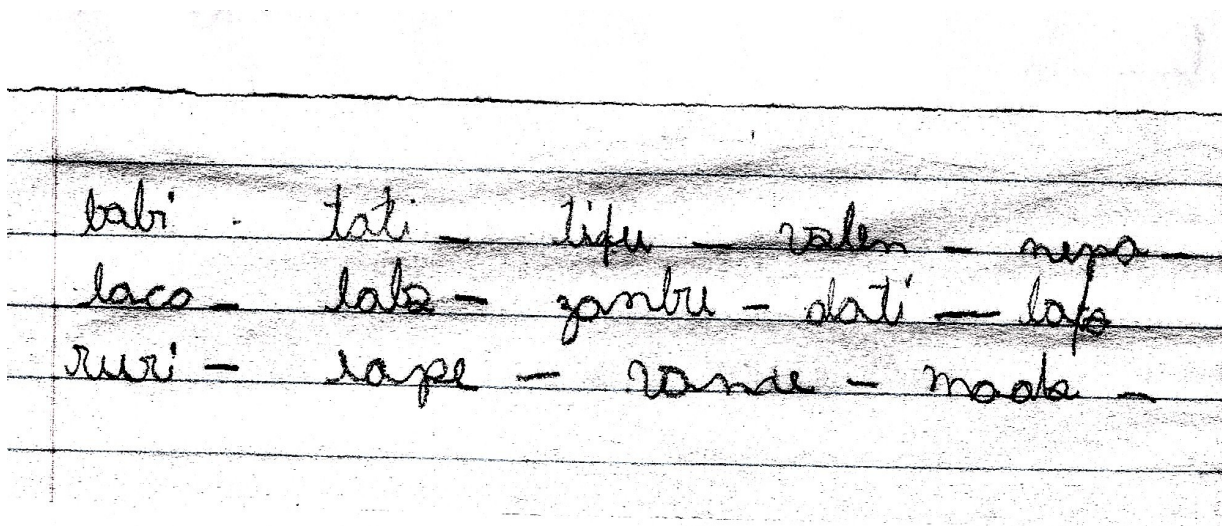 babi - tati - tifu - valen - nepo -
laco - laba - zambu - dati - lafo
ruri - rape - vance - moda -